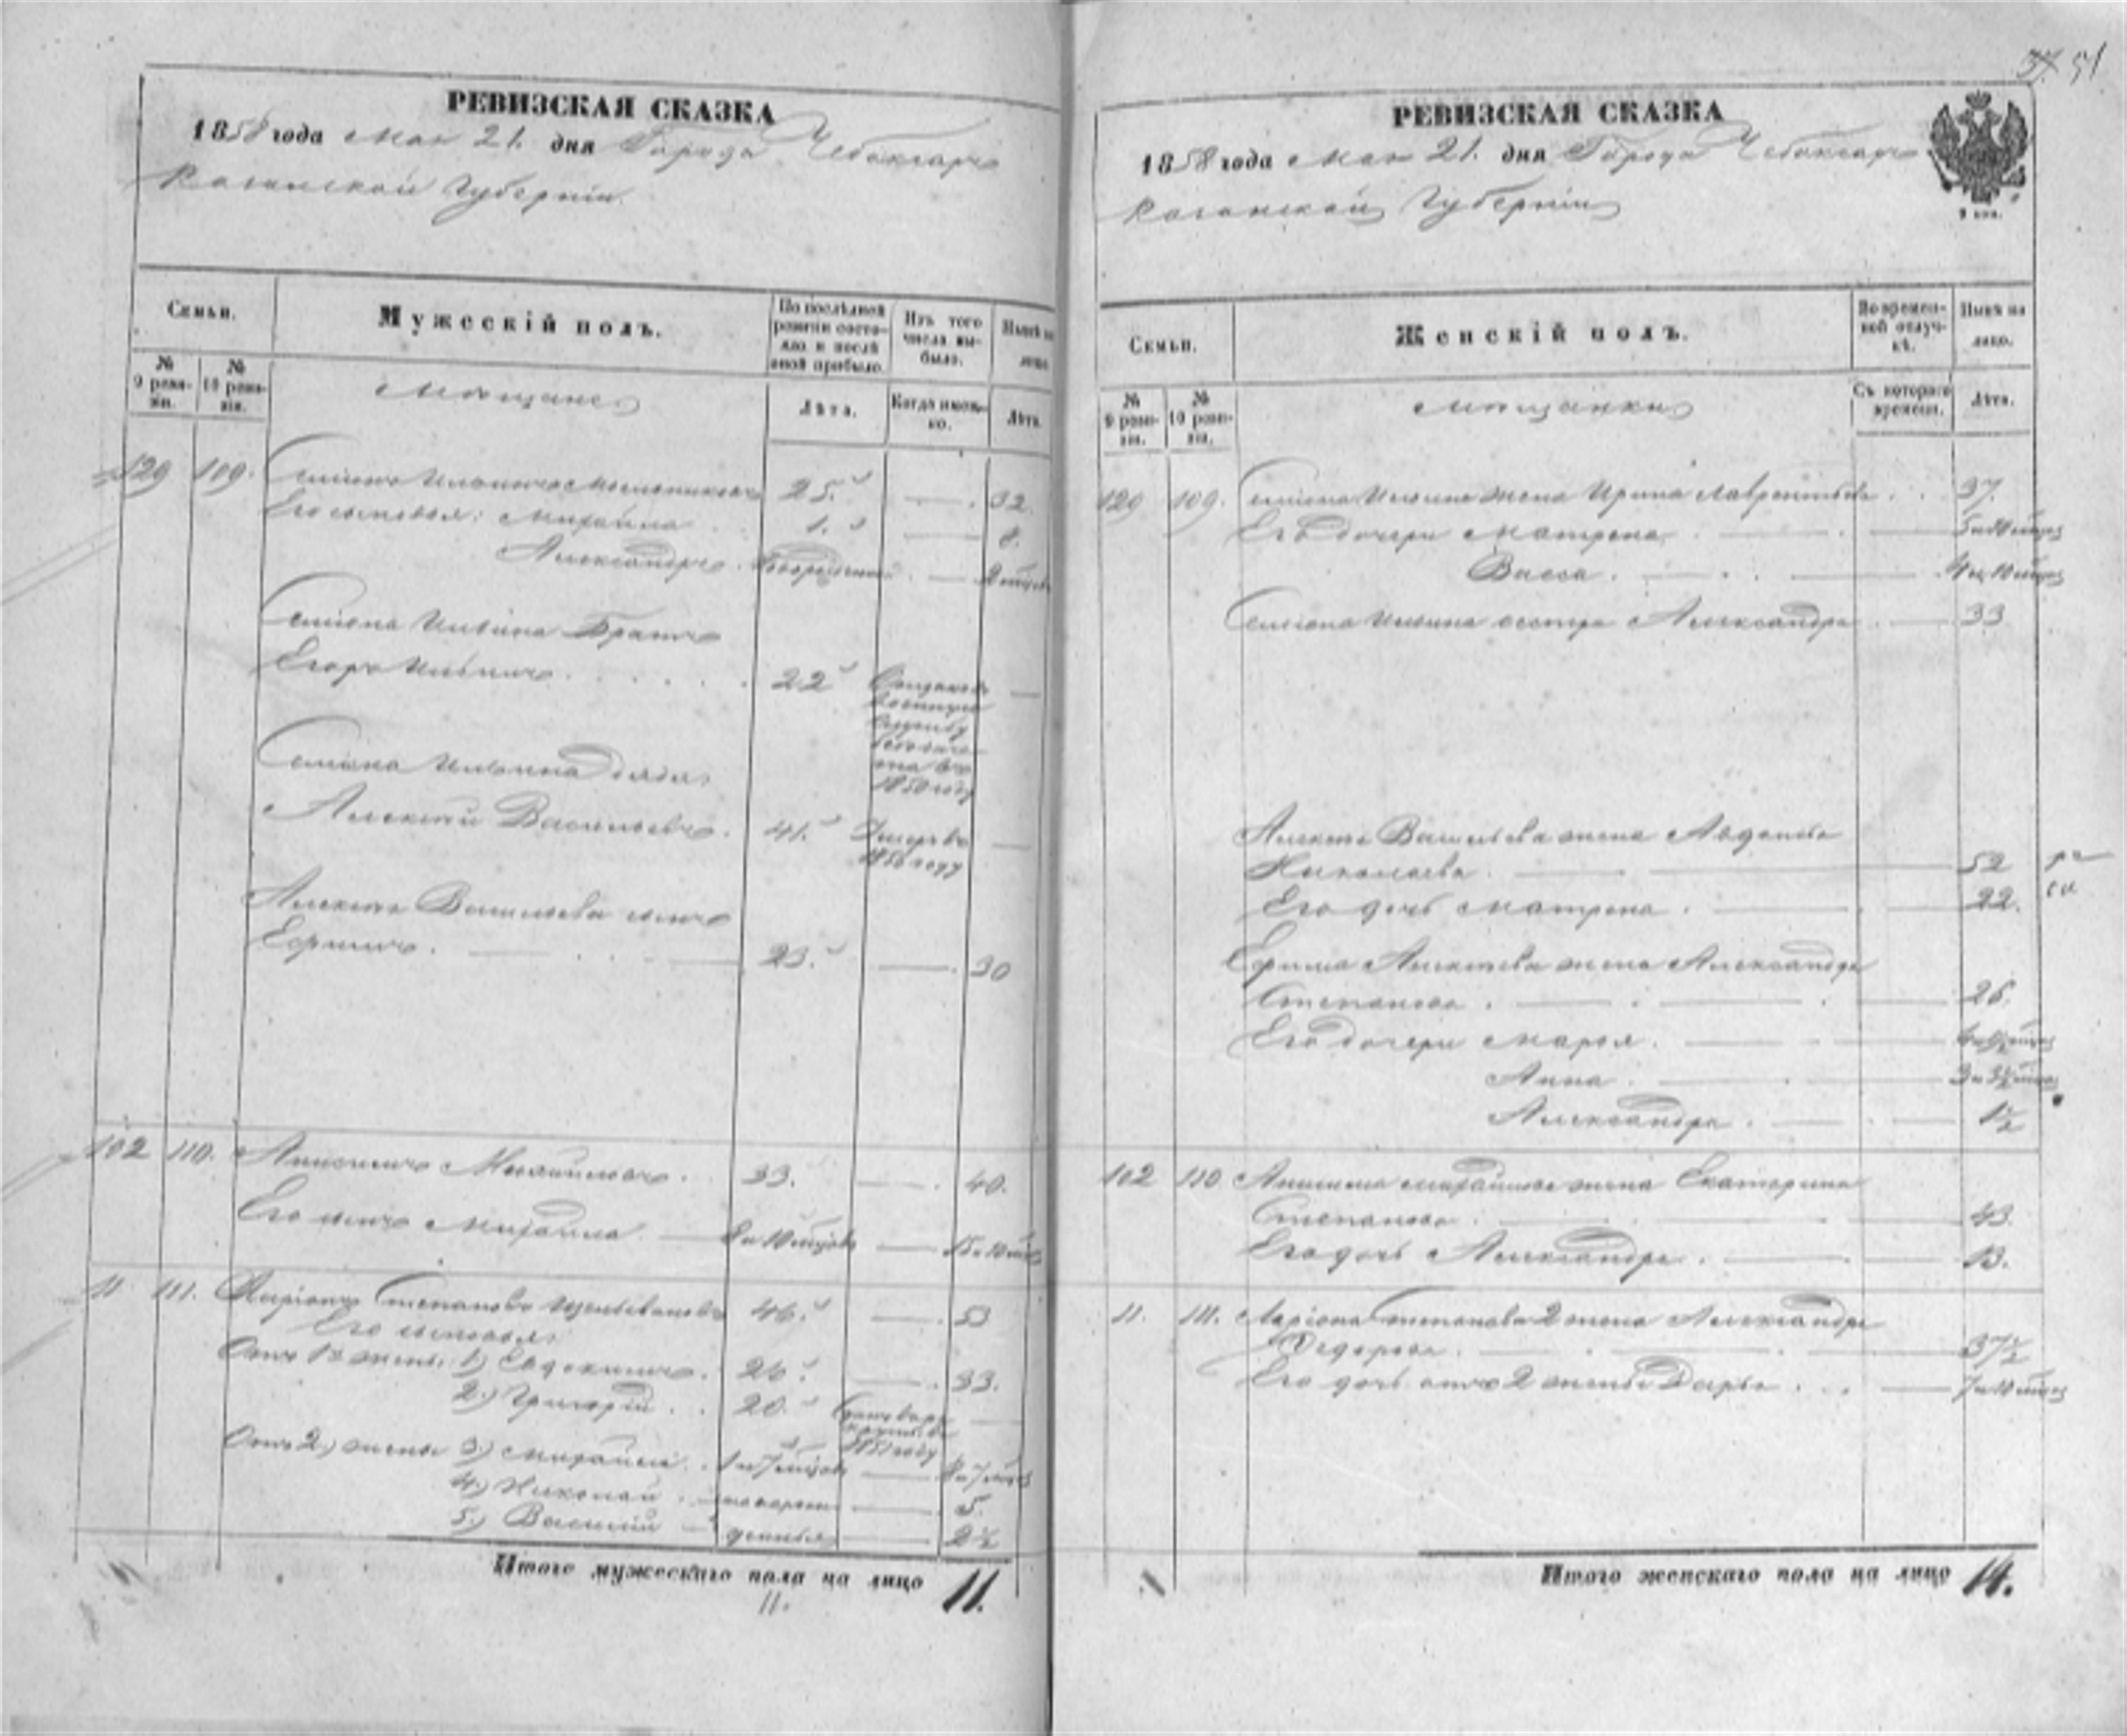 37. 51
РЕВИЗСКАЯ СКАЗКА
1858 года Мая 21. дня Города Чебоксаръ
Казанской Губерніи.
Семьи.
Мужескій полъ.
По послѣдней ревизіи состояло и послѣ оной прибыло.
Изъ того числа выбыло.
Нынѣ на лицо.
№ 9 ревизіи.
№ 10 ревизіи.
Мѣщане
Лѣта.
Когда именно.
Лѣта.
129 109. Семіонъ Ильинъ 25. 32.
Его сыновья: Михайла 1. 8.
Александръ
Семіона Ильина Братъ
Егоръ Ильинъ 22 военную службу 1850 году
Семіона Ильина дядя
Алексѣй Васильевъ. 41. Умеръ въ 1856 году
Алексѣя Васильева сынъ
Ефимъ. 23. 30
102 110. Анисимъ Михайловъ. 33. 40.
Его сынъ Михайла 8 и 10 мѣсяцовъ 15 и 10
11 111. Ларіонъ Степановъ 46. 53
Его сыновья:
Отъ 1й жены: 1) Евдокимъ. 26. 33.
2.) Григорій. 20. 1851 году
Отъ 2.) жены 3.) Михайла 1 и 7 мѣсяцовъ 8 и 7
4.) Николай 5.
5.) Василій 2 1/2
Итого мужескаго пола на лицо 11.
11.
РЕВИЗСКАЯ СКАЗКА
1858 года Мая 21. дня Города Чебоксаръ
Казанской Губерніи
Семьи.
Женскій полъ.
Во временной отлучкѣ.
Нынѣ на лицо.
№ 9 ревизіи.
№ 10 ревизіи.
Мѣщанки
Съ котораго времени.
Лѣта.
129 109. Семіона Ильина жена Ирина Лаврентьева 37.
Его дочери Матрена
Васса.
Семіона Ильина сестра Александра 33
Алексѣя Васильева жена Авдотья
Николаева 52
Его дочь Матрена. 22.
Ефима Алексѣева жена Александра
Степанова. 26.
Его дочери Марья.
Анна
Александра. 1 1/2
102 110 Анисима Михайлова жена Екатерина
Степанова 43.
Его дочь Александра. 13.
11. 111. Ларіона Степанова 2 жена Александра
Федорова. 37 1/2
Его дочь отъ 2 жены Дарья
Итого женскаго пола на лицо 14.